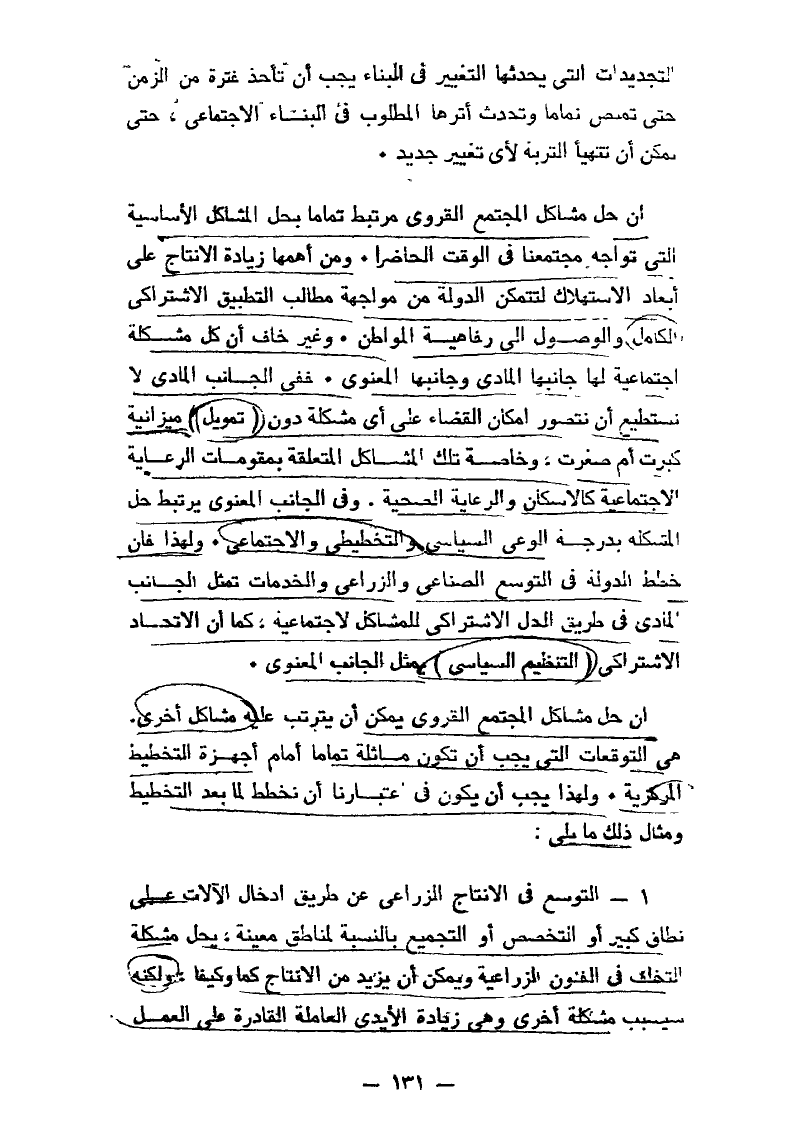 التجديدات التى يحدثها التغيير فى البناء يجب أن تأخذ فترة من الزمن
حتى تمتص تماما وتحدث أثرها المطلوب فى البنـاء الاجتماعى ، حتى
يمكن أن تتهيأ التربة لأى تغيير جديد ٠
ان حل مشاكل المجتمع القروى مرتبط تماما بحل المشاكل الأساسية
التى تواجه مجتمعنا فى الوقت الحاضر ٠ ومن أهمها زيادة الانتاج على
أبعاد الاستهلاك لتتمكن الدولة من مواجهة مطالب التطبيق الاشتراكى
الكامل والوصـول الى رفاهيـة المواطن ٠ وغير خاف أن كل مشـكلة
اجتماعية لها جانبها المادى وجانبها المعنوى ٠ ففى الجـانب المادى لا
نستطيع أن نتصور امكان القضاء على أى مشكلة دون ( تمويل ) ميزانية
كبرت أم صغرت ، وخاصـة تلك المشـاكل المتعلقة بمقومـات الرعـاية
الاجتماعية كالاسكان والرعاية الصحية . وفى الجانب المعنوى يرتبط حل
المشكله بدرجـة الوعى السياسى والتخطيطى والاجتماعى ٠ ولهذا فان
خطط الدولة فى التوسع الصناعى والزراعى والخدمات تمثل الجـانب
المادى فى طريق الحل الاشتراكى للمشاكل لاجتماعية ؛ كما أن الاتحـاد
الاشتراكى ( التنظيم السياسى ) يمثل الجانب المعنوى ٠
ان حل مشاكل المجتمع القروى يمكن أن يترتب عليه مشاكل أخرى .
هى التوقعات التى يجب أن تكون مـاثلة تماما أمام أجهـزة التخطيط
المركزية ٠ ولهذا يجب أن يكون فى اعتبـارنا أن نخطط لما بعد التخطيط
ومثال ذلك ما يلى :
١ — التوسع فى الانتاج الزراعى عن طريق ادخال الآلات عـلى
نطاق كبير أو التخصص أو التجميع بالنسبة لمناطق معينة ؛ يحل مشكلة
التخلف فى الفنون الزراعية ويمكن أن يزيد من الانتاج كما وكيفا ؛ ولكنه
سيسبب مشكلة أخرى وهى زيادة الأيدى العاملة القادرة على العمـل
— ١٣١ —